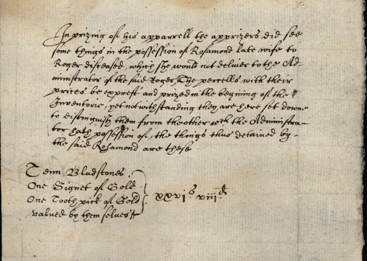 In prizing of his apparrell the apprizers did see
some things in the possession of Rosamond late wife to
Roger diseased, which she would not deliver to the Ad-
ministrator of the said Roger, the percells with their
prices be exprest and prized in the begining of the
Inventorie, yet notwithstanding they are here set downe
to distinguish them from the other wch the Administra-
tor hath possession of, the things thus detained by
the said Rosamond are these
Tenn Bludstones
One Signet of Gold
One Tooth pick of Gold
valued by them selves
xxvis viiid